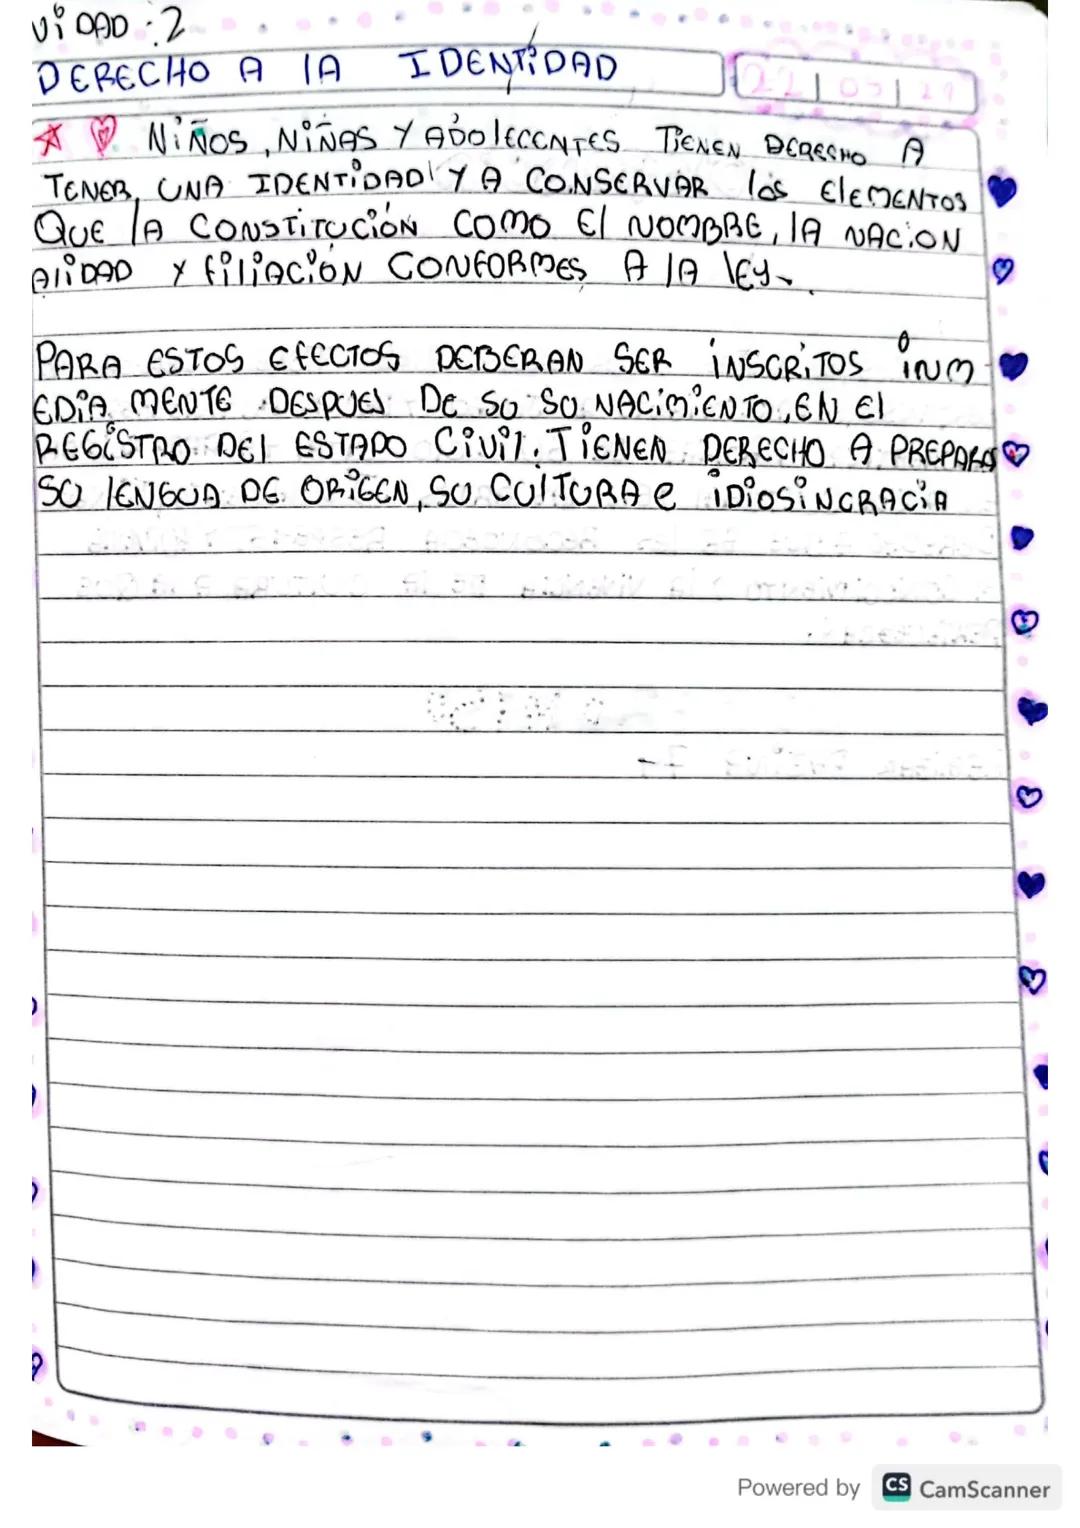 ViDAD :2
DERECHO A lA IDENTiDAD
22 | 03 |
NiÑOS, NiÑAS Y ADOlECENTES TiENEN DERECHO A
TENER UNA IDENTiDAD Y A CONSERVAR los ElEMENTOS
QUE lA CONSTiTUCiÓN COMO El NOMBRE, lA NACiON
AliDAD Y filiACiÓN CONFORMES A lA lEY.
PARA ESTOS EfECTOS DEBERAN SER iNSCRiTOS iNM
EDiA MENTE DESPUES DE SU SU NACiMiENTO, EN El
REGiSTRO DEl ESTADO CiVil. TiENEN DERECHO A PREPARAS
SU lENGUA DE ORiGEN, SU CUlTURA e iDiOSiNCRACiA
Powered by CS CamScanner